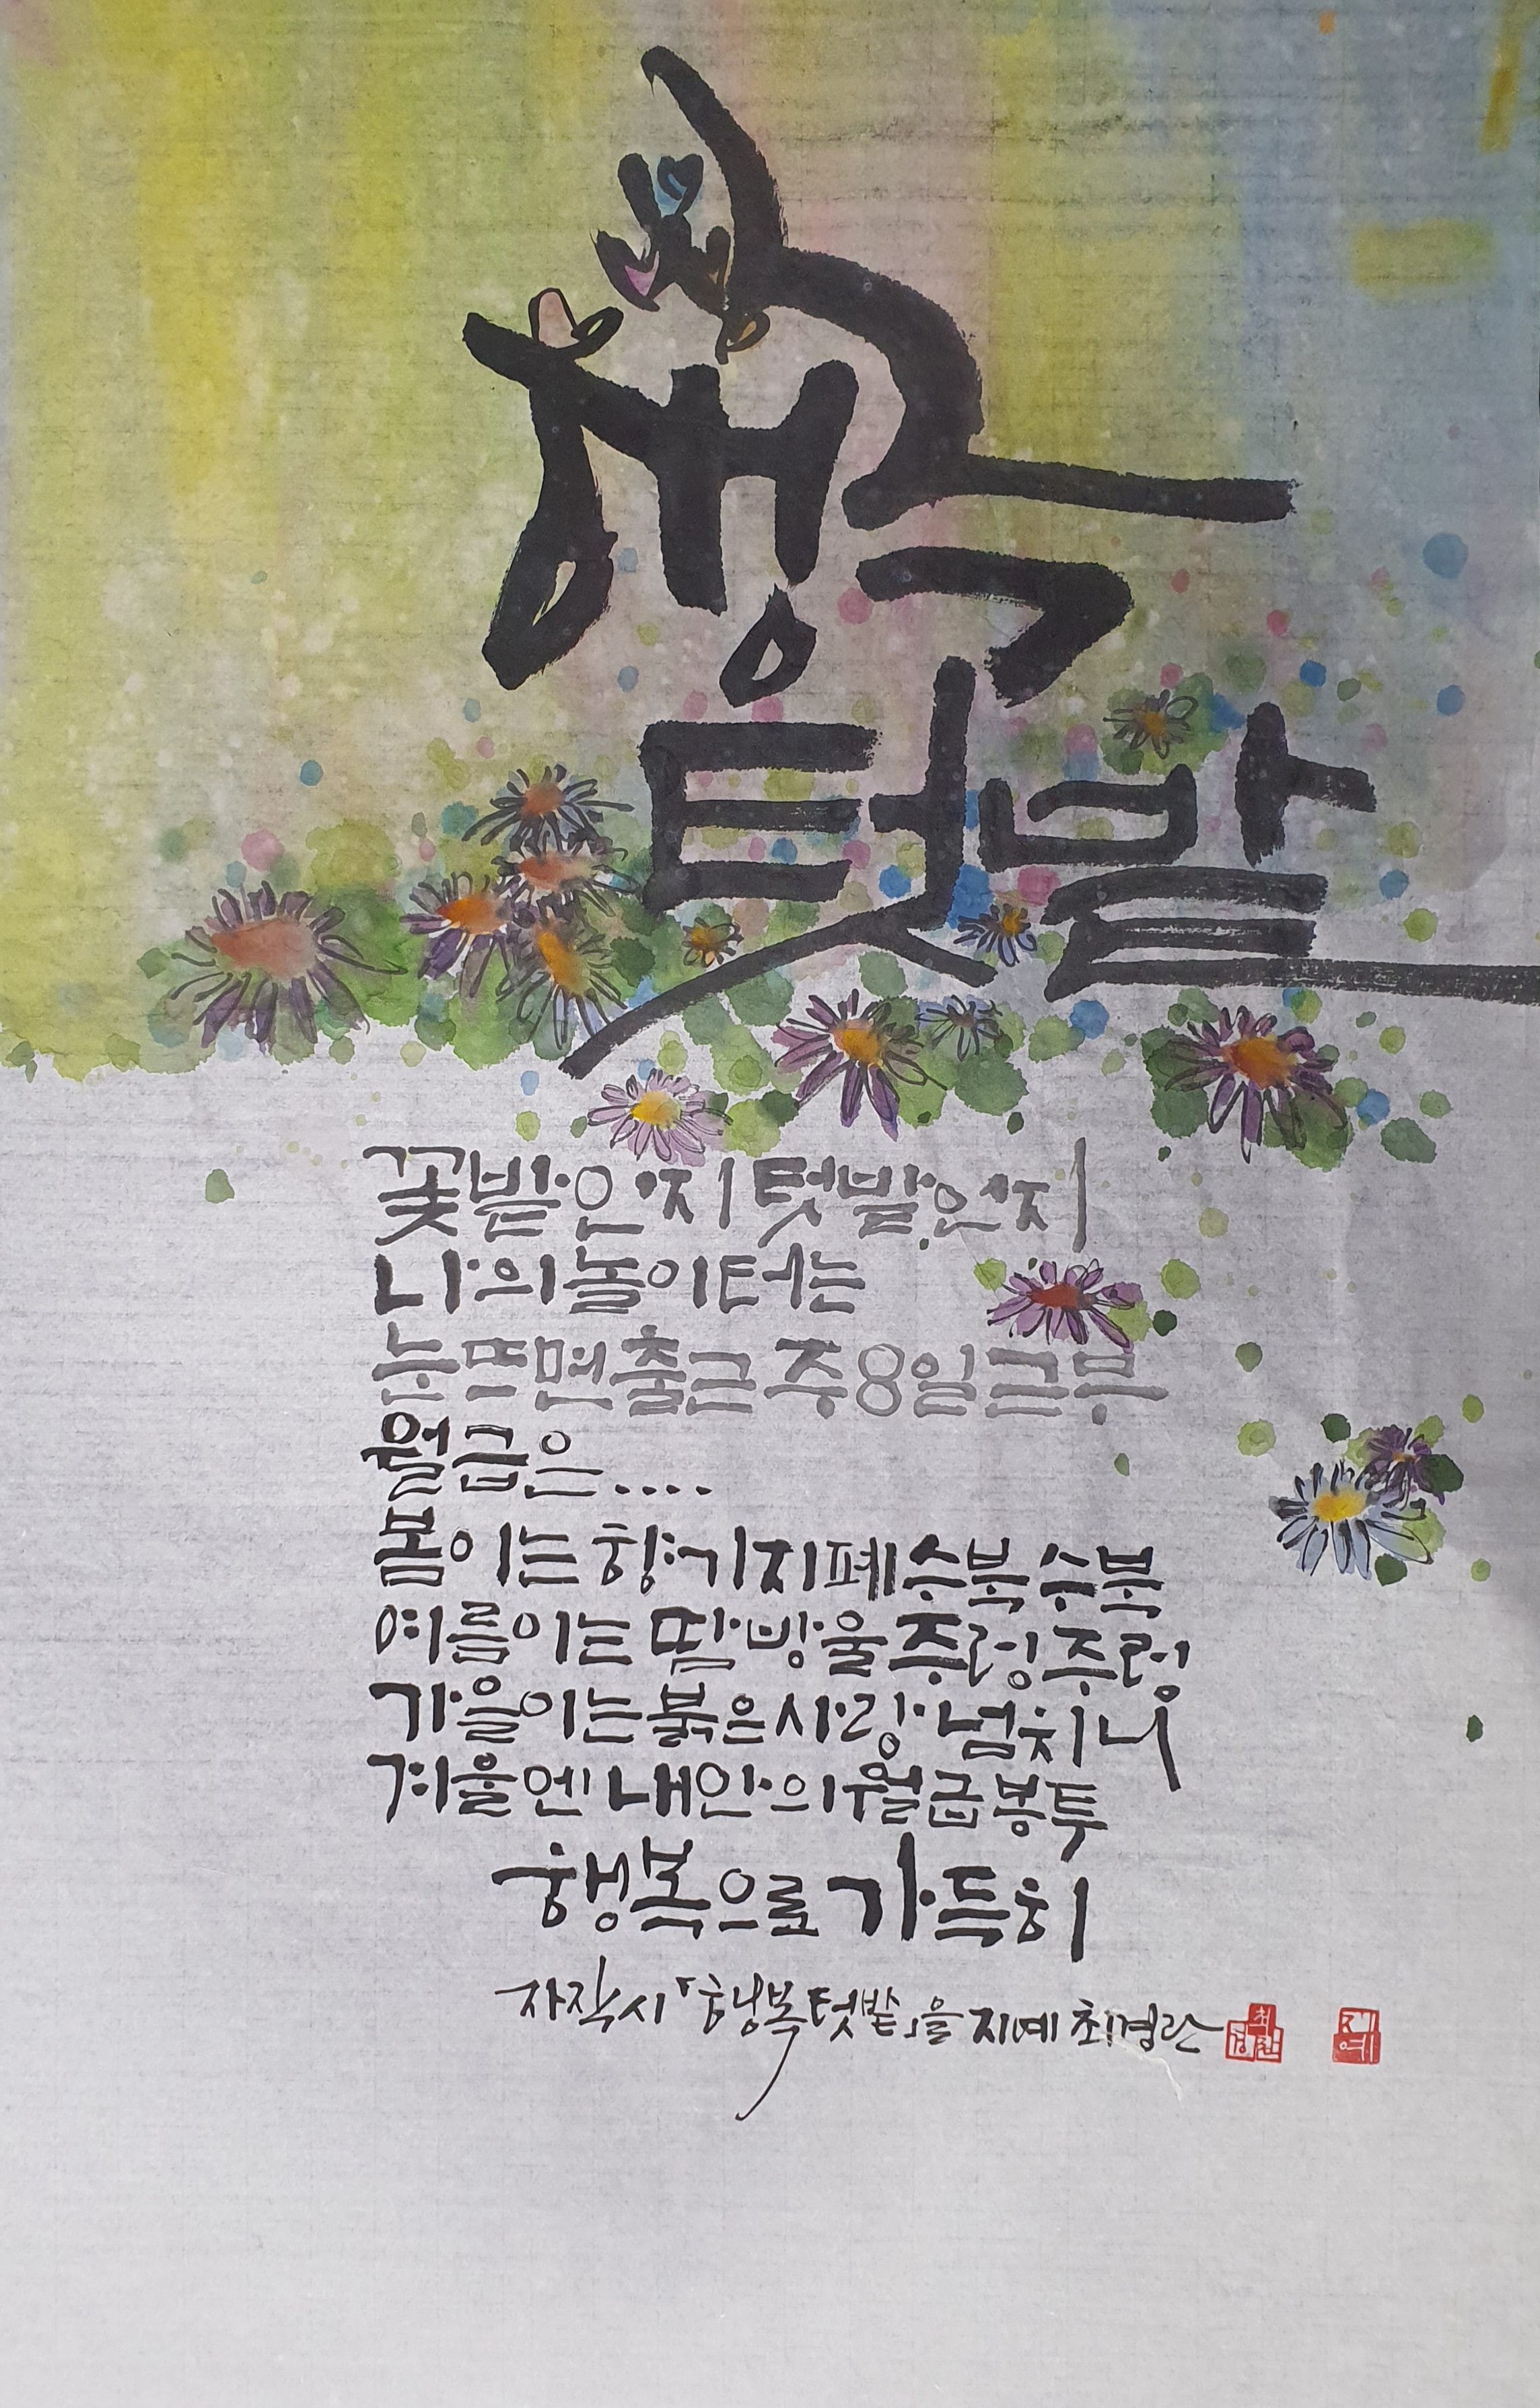 행복
텃밭
꽃밭인지 텃밭인지
나의 놀이터는
눈뜨면 출근 주8일 근무
월급은....
봄이는 향기지폐 수북수북
여름이는 땀방울 주렁주렁
가을이는 붉은 사랑 넘치니
겨울엔 내안의 월급봉투
행복으로 가득히
자작시「행복텃밭」을 지예 최경란
최경란
지예